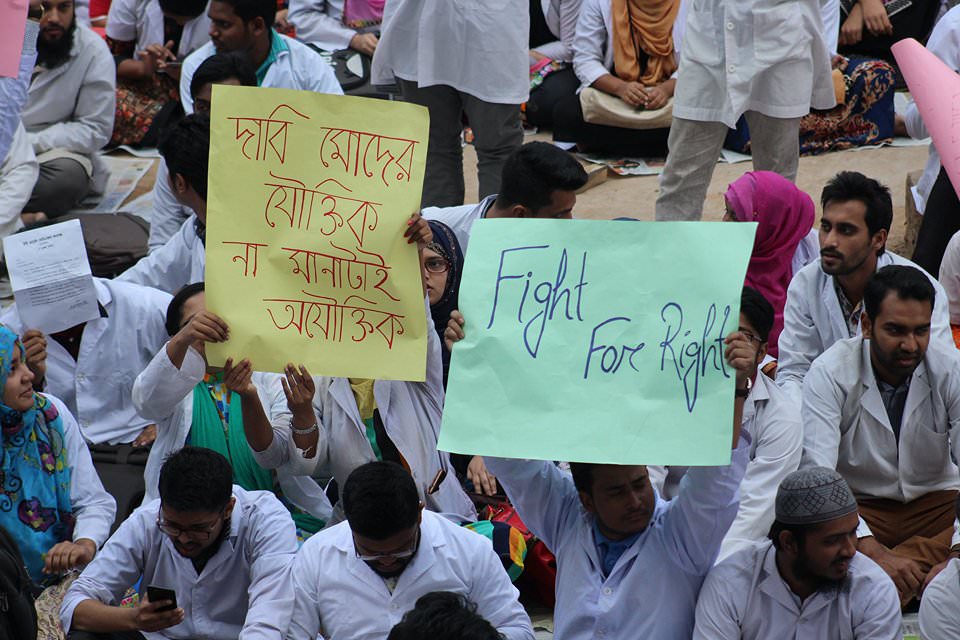 দাবি মোদের
যৌক্তিক
না মানাটাই
অযৌক্তিক
Fight
For Right